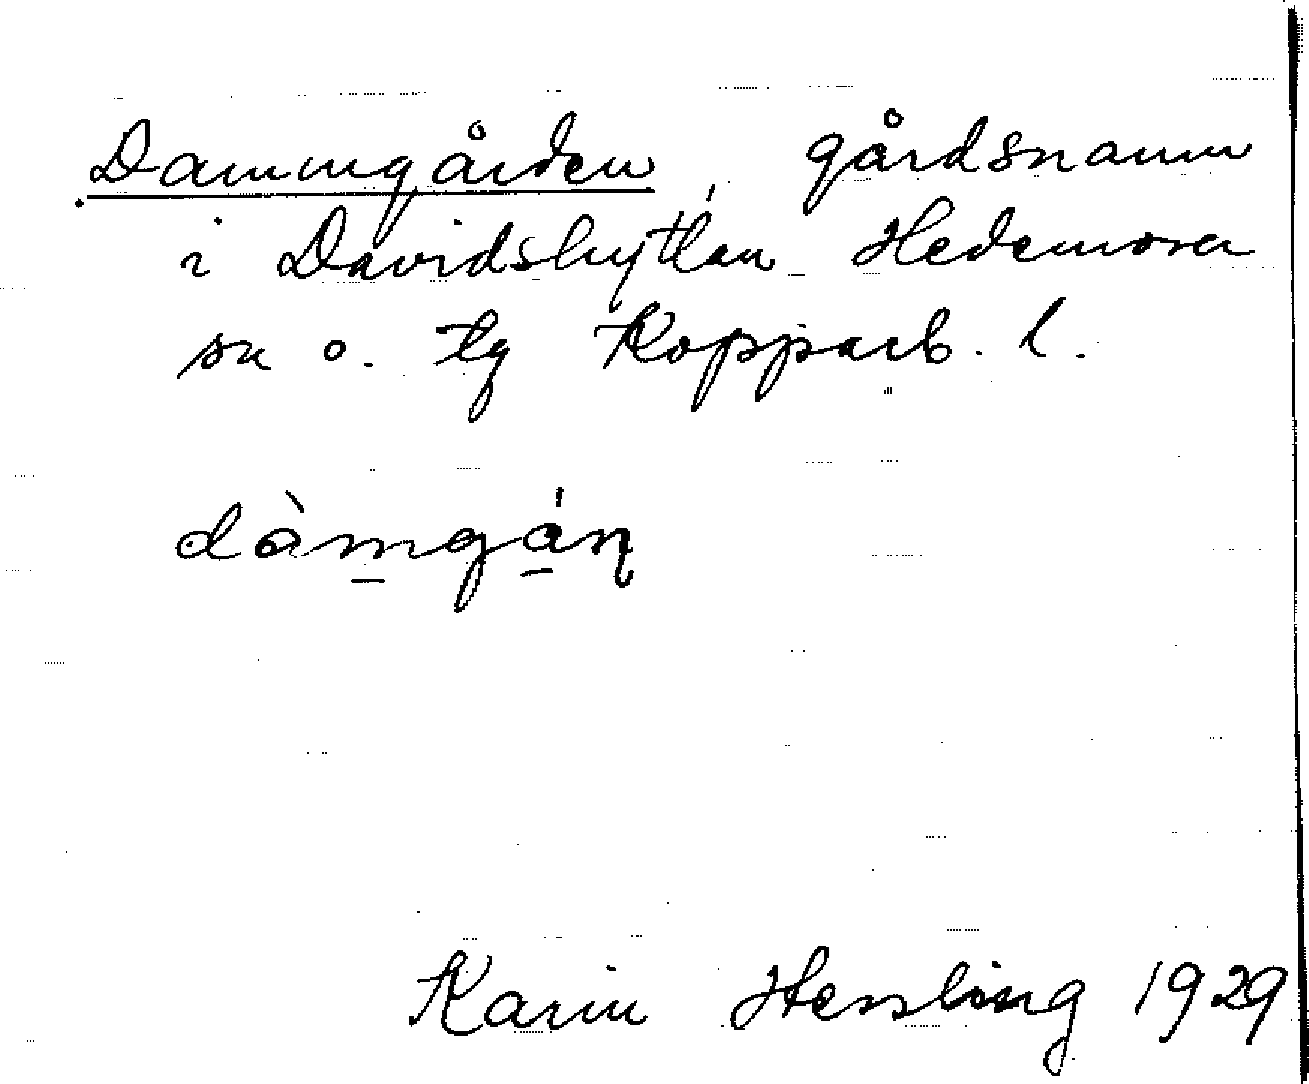 Dammgården, gårdsnamn
i Davidshyttan Hedemora
sn o. tg Kopparb. l.
dàmgán
Karin Hessling 1929